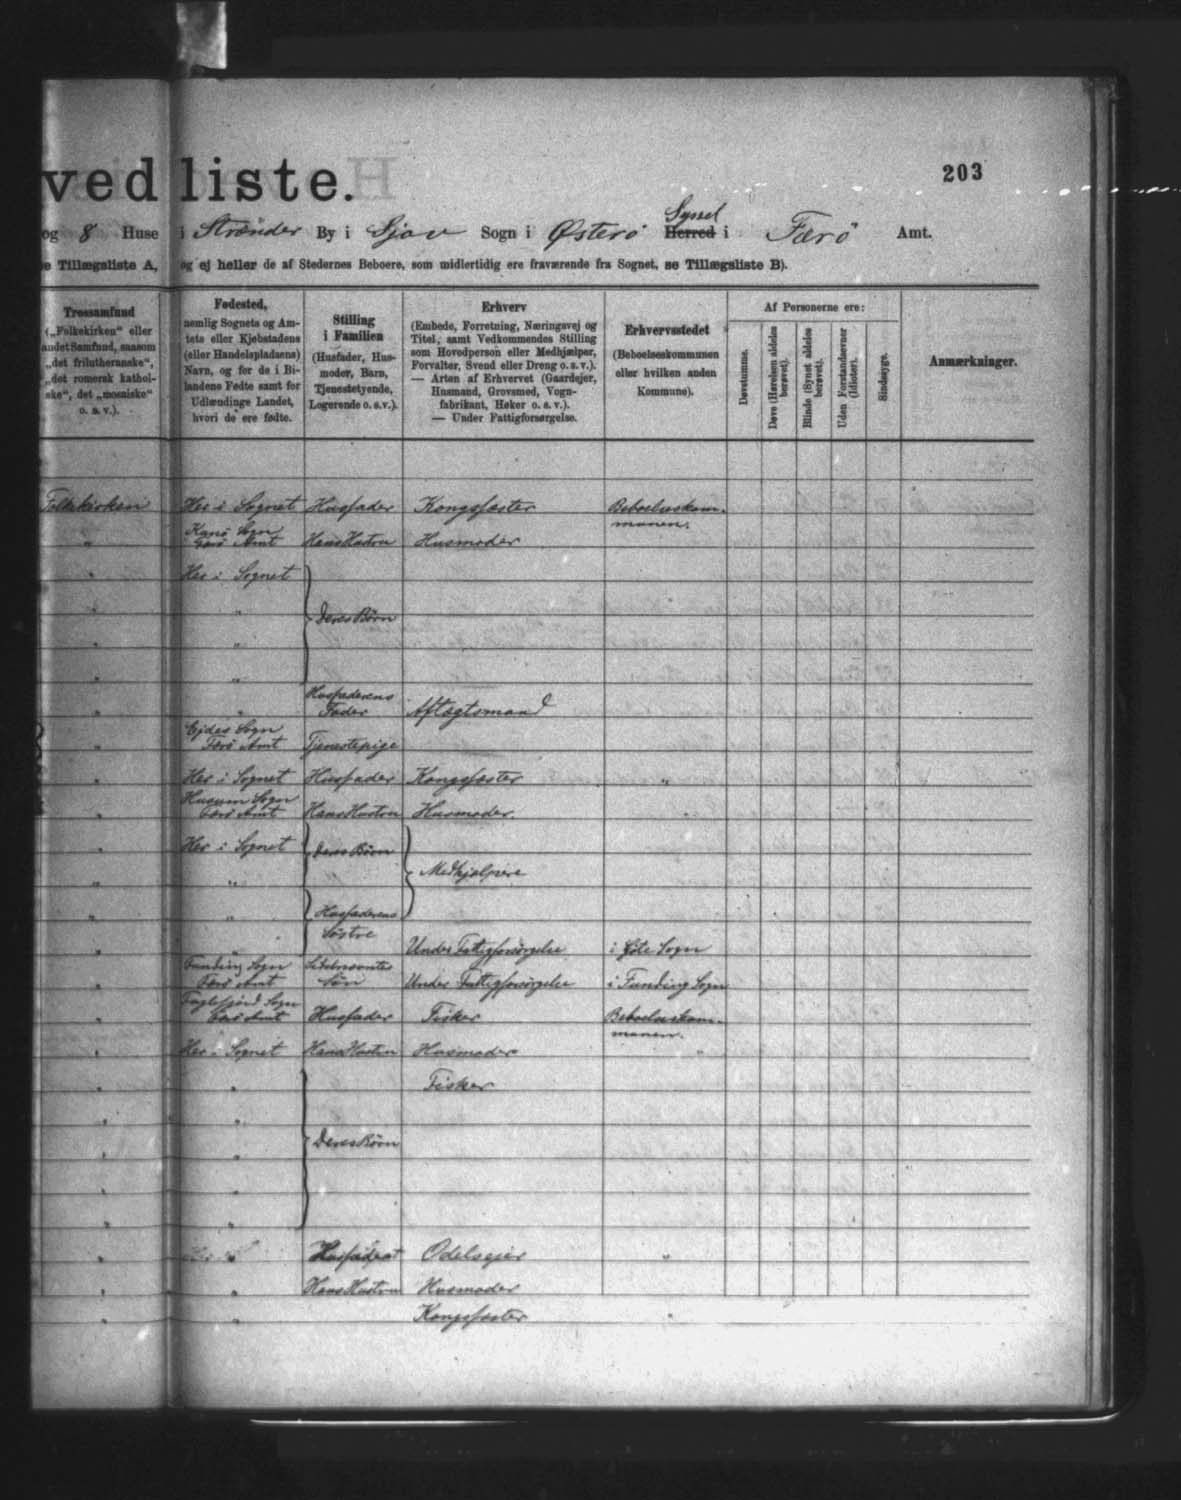 203
vedliste.
og 8 Huse i Strænder By i Sjov Sogn i Østerö Syssel Herred i Færö Amt.
e Tillægsliste A, og ej heller de af Stedernes Beboere, som midlertidig ere fraværende fra Sognet, se Tillægsliste B).
Trossamfund
(„Folkekirken" eller
andet Samfund, saasom
„det frilutheranske",
„det romersk kathol-
ske", det „mosaiske"
o. s. v.).
Fødested,
nemlig Sognets og Am-
tets eller Kjøbstadens
(eller Handelspladsens)
Navn, og for de i Bi-
landene Fødte samt for
Udlændinge Landet,
hvori de ere fødte.
Stilling
i Familien
(Husfader, Hus-
moder, Barn,
Tjenestetyende,
Logerende o. s. v.).
Erhverv
(Embede, Forretning, Næringsvej og
Titel, samt Vedkommendes Stilling
som Hovedperson eller Medhjælper,
Forvalter, Svend eller Dreng o. s. v.).
— Arten af Erhvervet (Gaardejer,
Husmand, Grovsmed, Vogn-
fabrikant, Høker o. s. v.).
— Under Fattigforsørgelse.
Erhvervsstedet
(Beboelseskommunen
eller hvilken anden
Kommune).
Af Personerne ere:
Døvstumme.
Døve (Hørelsen aldeles
berøvet).
Blinde (Synet aldeles
berøvet).
Uden Forstandsevner
(Idioter).
Sindssyge.
Anmærkninger.
Folkekirken Her i Sognet Husfader Kongsfæster Beboelseskom-
munen.
" Sogn
Færö Amt Hans Hustru Husmoder
" Her i Sognet
" " Deres Børn
" "
" "
" " Husfaderens
Fader Aftægtsmand
" Ejdes Sogn
Færö Amt Tjenestepige
" Her i Sognet Husfader Kongsfæster "
Husum Sogn
" Færö Amt Hans Hustru Husmoder "
" Her i Sognet Deres Børn
" " Medhjælpere
" " Husfaderens
Søstre
" " Under Fattigforsørgelse i Göte Sogn
" Funding Sogn
Færö Amt Sidstnævntes
Søn Under Fattigforsørgelse i Funding Sogn
" Fuglefjord Sogn
Færö Amt Husfader Fisker Beboelseskom-
munen.
" Her i Sognet Hans Hustru Husmoder "
" " Fisker
" "
" " Deres Børn
" "
" "
" " Husfader Odelsejer "
" " Hans Hustru Husmoder
" " Kongsfæster "